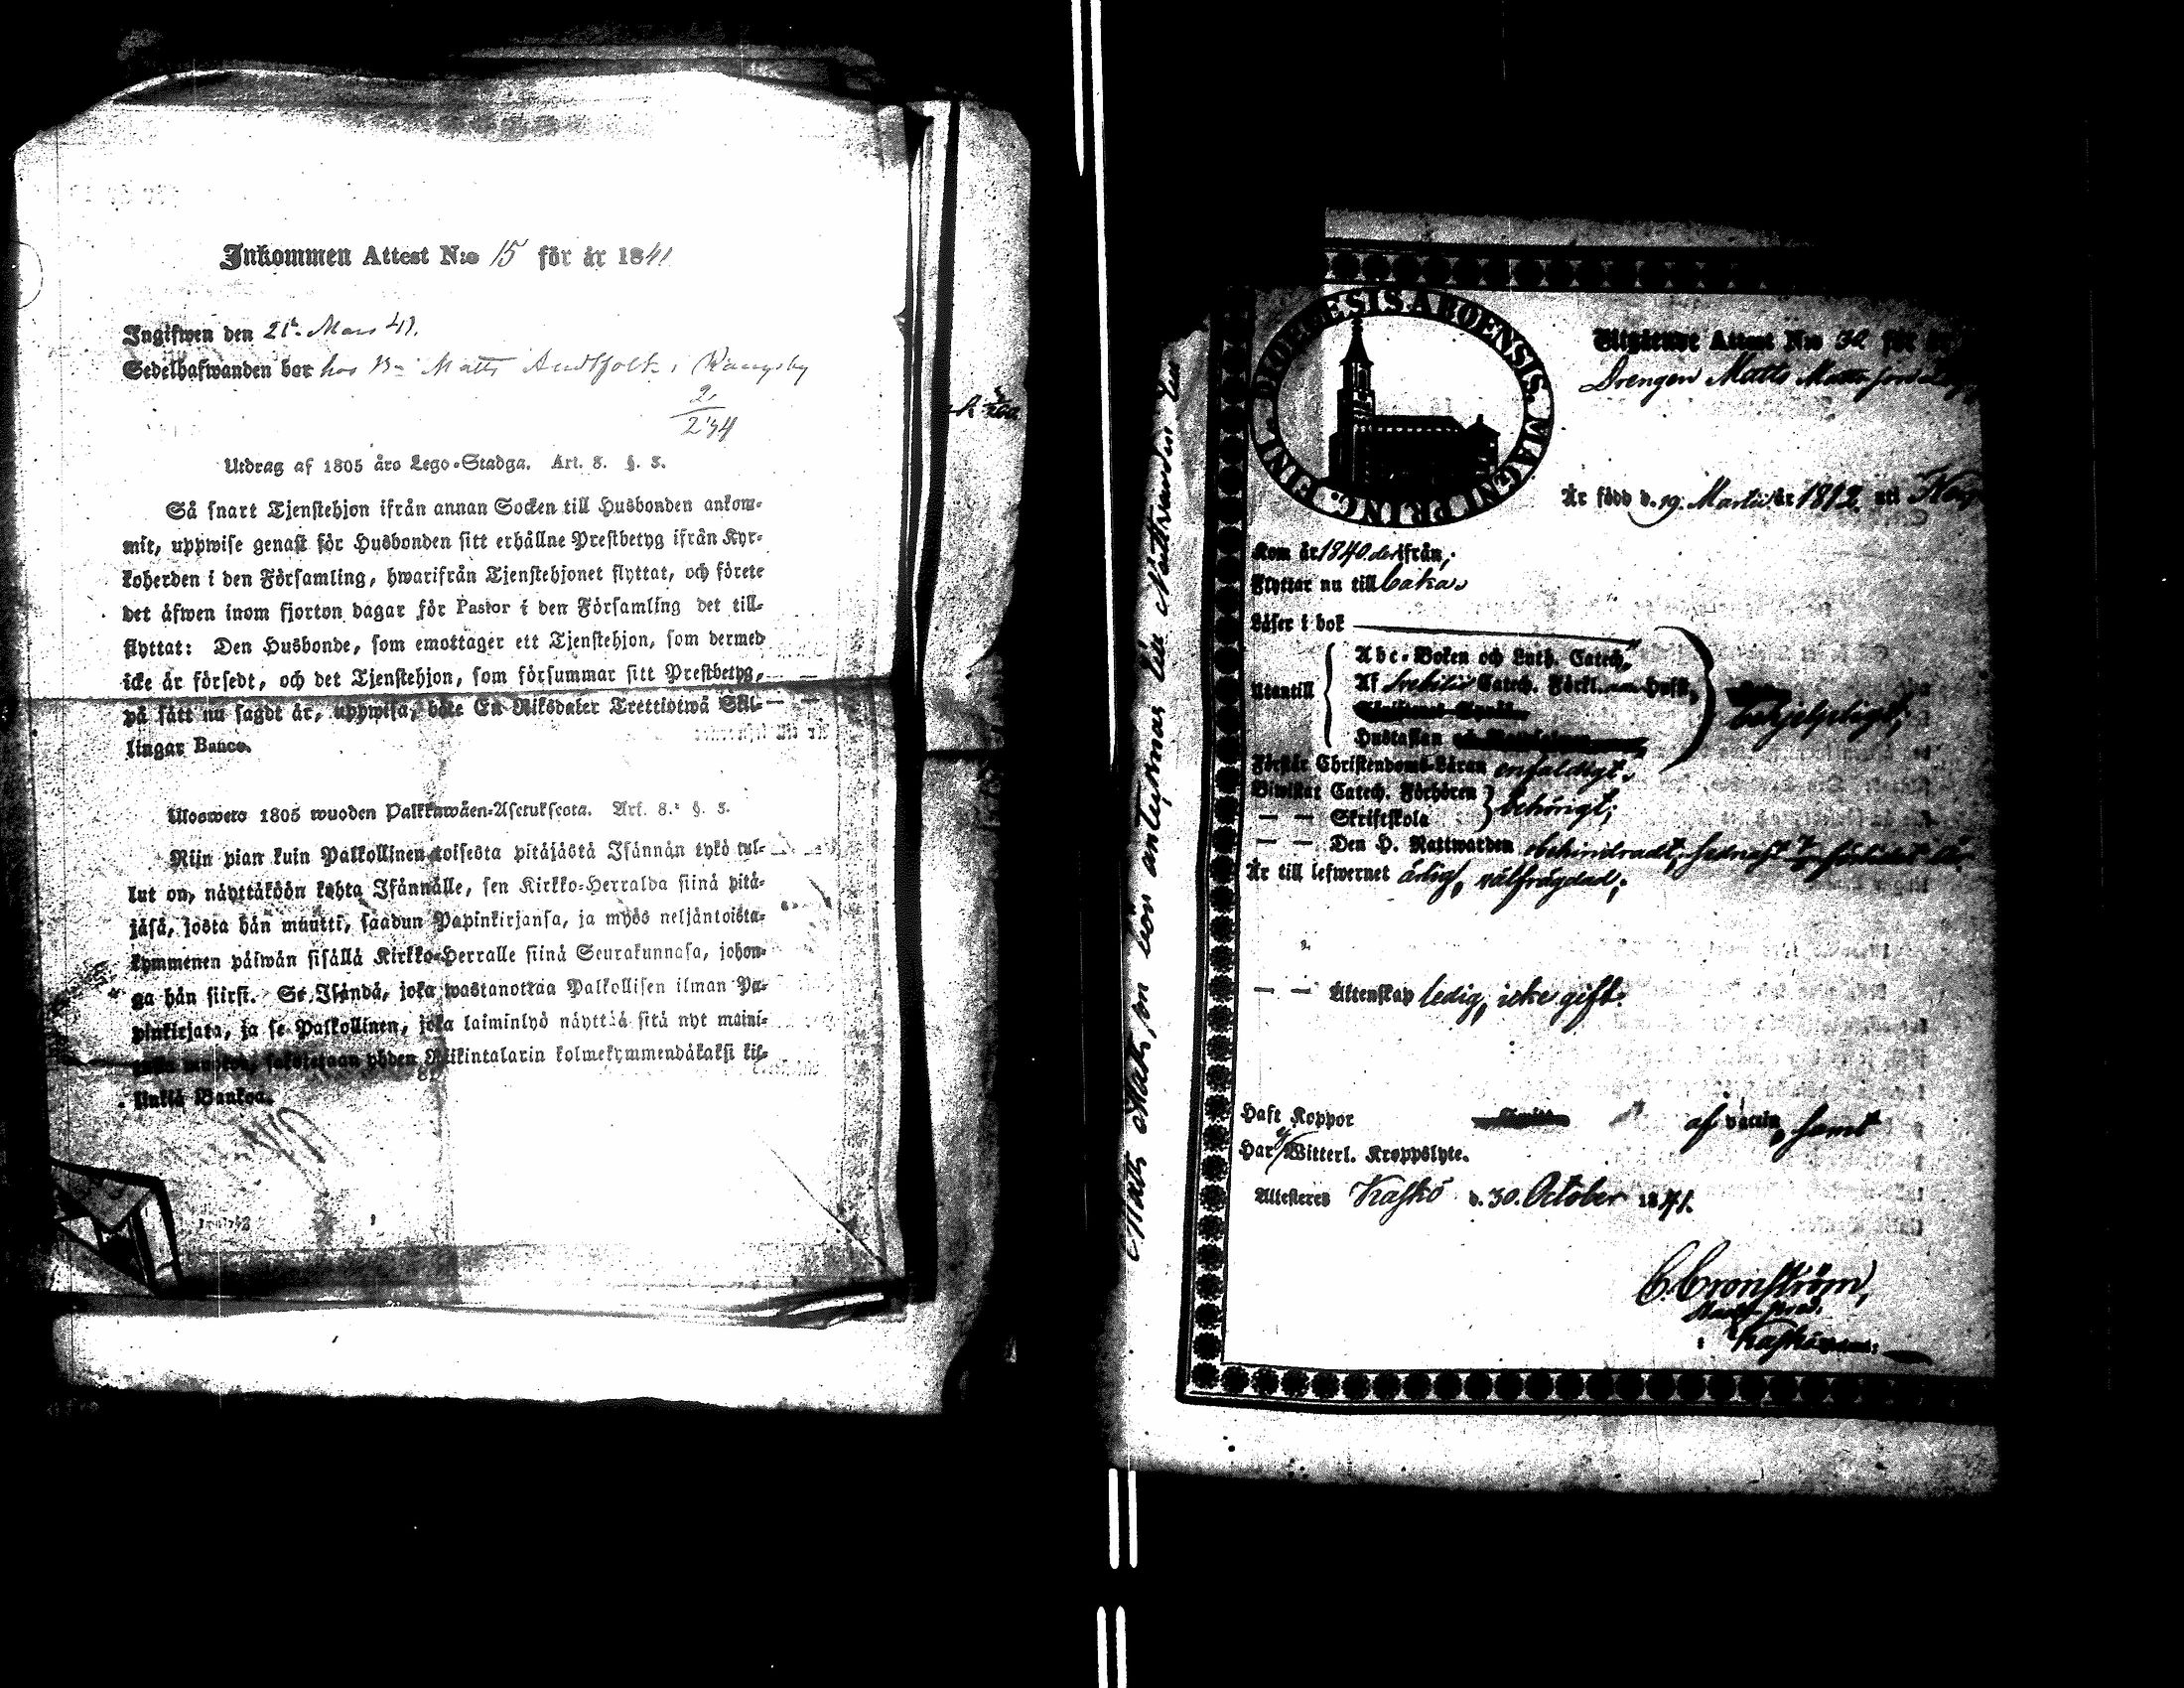 Inkommen Attest N:o 15 för år 1841
Ingifwen den 21 Mars 41.
Sedelhafwanden bor hos Matts
2
2 44
Utdrag af 1805 års Lego-Stadga. Art. 8. §. 3.
Så snart Tjenstehjon ifrån annan Socken till Husbonden ankom-
mit, uppwise genast för Husbonden sitt erhållne Prestbetyg ifrån Kyr-
koherden i den Församling, hwarifrån Tjenstehjonet flyttat, och förete
det äfwen inom fjorton dagar för Pastor i den Församling det till-
flyttat: Den Husbonde, som emottager ett Tjenstehjon, som dermed
icke är försedt, och det Tjenstehjon, som försummar sitt Prestbetyg,
på sätt nu sagdt är, uppwisa, böte En Riksdaler Trettiotwå Skil-
lingar Banco.
Uloswero 1805 wuoden Palkkawäen-Asetuksesta. Art. 8. §. 3.
Niin pian kuin Palkollinen toisesta pitäjästä Isännän tykö tul-
lut on, näyttäköön kohta Isännälle, sen Kirkko-Herralda siinä pitä-
jäsä, josta hän muutti, saadun Papinkirjansa, ja myös neljäntoista-
kymmenen päiwän sisällä Kirkko-Herralle siinä Seurakunnasa, johon-
ga hän siirsi. Se Isändä, joka wastanottaa Palkollisen ilman Pa-
pinkirjata, ja se Palkollinen, joka laiminlyö näyttää sitä nyt maini-
sakotetaan yhden Riikintalarin kolmekymmendäkaksi kil-
linkiä Bankoa.
DIOECESIS ABOENSIS. MAGNI PRINC. FINL.
Utgående Attest N:o 32 för
Drengen Matts Mattsson
Är född d. 19. Martii år 1812. uti
Kom år 1840 derifrån;
Flyttar nu till baka.
Läser i bok
Utantill
Abc-Boken och Luth. Catech.
Af Svebilii Catech. Förkl.
Hustaflan
behjelpligt;
Förstår Christendoms-Läran enfaldigt.
Biwistat Catech. Förhören
— — Skriftskola
behörigt;
— — Den H. Nattwarden obehindradt,
Är till lefwernet ärlig, välfrägdad;
— — Ältenskap ledig, icke gift.
Haft Koppor af vaccin, samt
Har Witterl. Kroppslyte.
Attesteres Kaskö d. 30. October 1841.
C. Cronström,